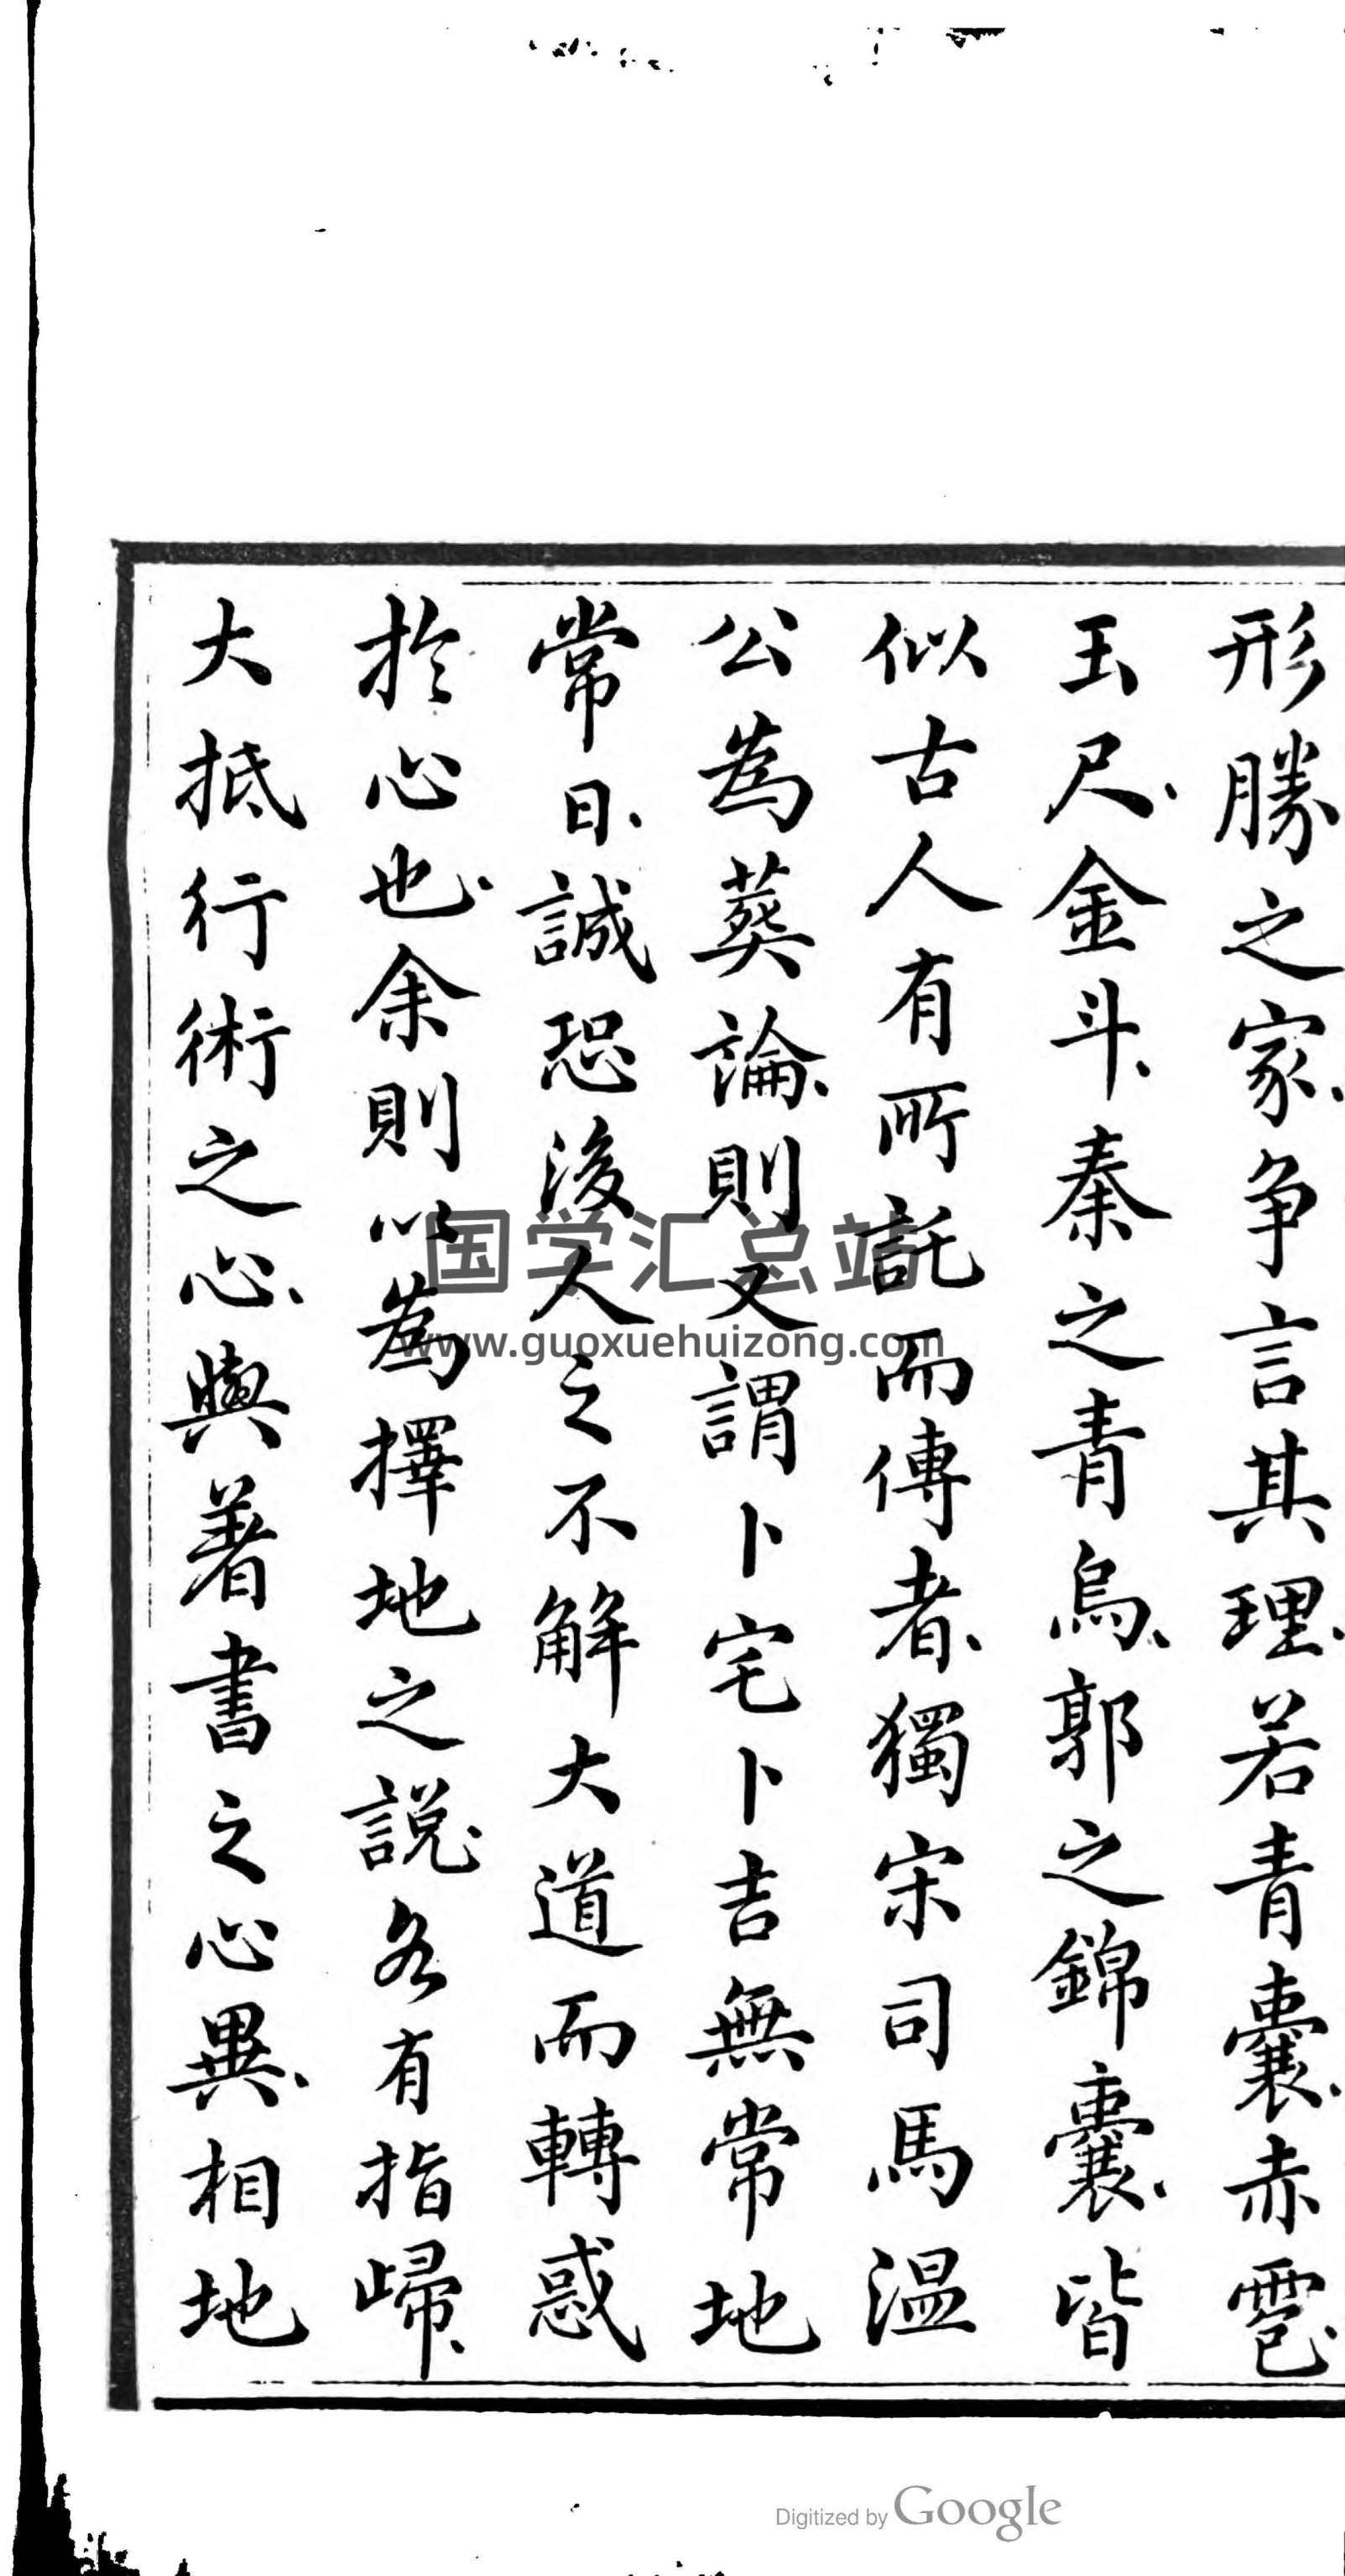 形勝之家、争言其理、若青囊、赤雹、
玉尺、金斗、秦之青烏、郭之錦囊、皆
似古人有所託而傳者、獨宋司馬溫
公為葬論、則又謂卜宅卜吉無常地
常日、誠恐後人之不解大道而轉惑
於心也、余則以為擇地之說、各有指歸、
大抵行術之心、與著書之心異、相地
国学汇总站
www.guoxuehuizong.com
Digitized by Google